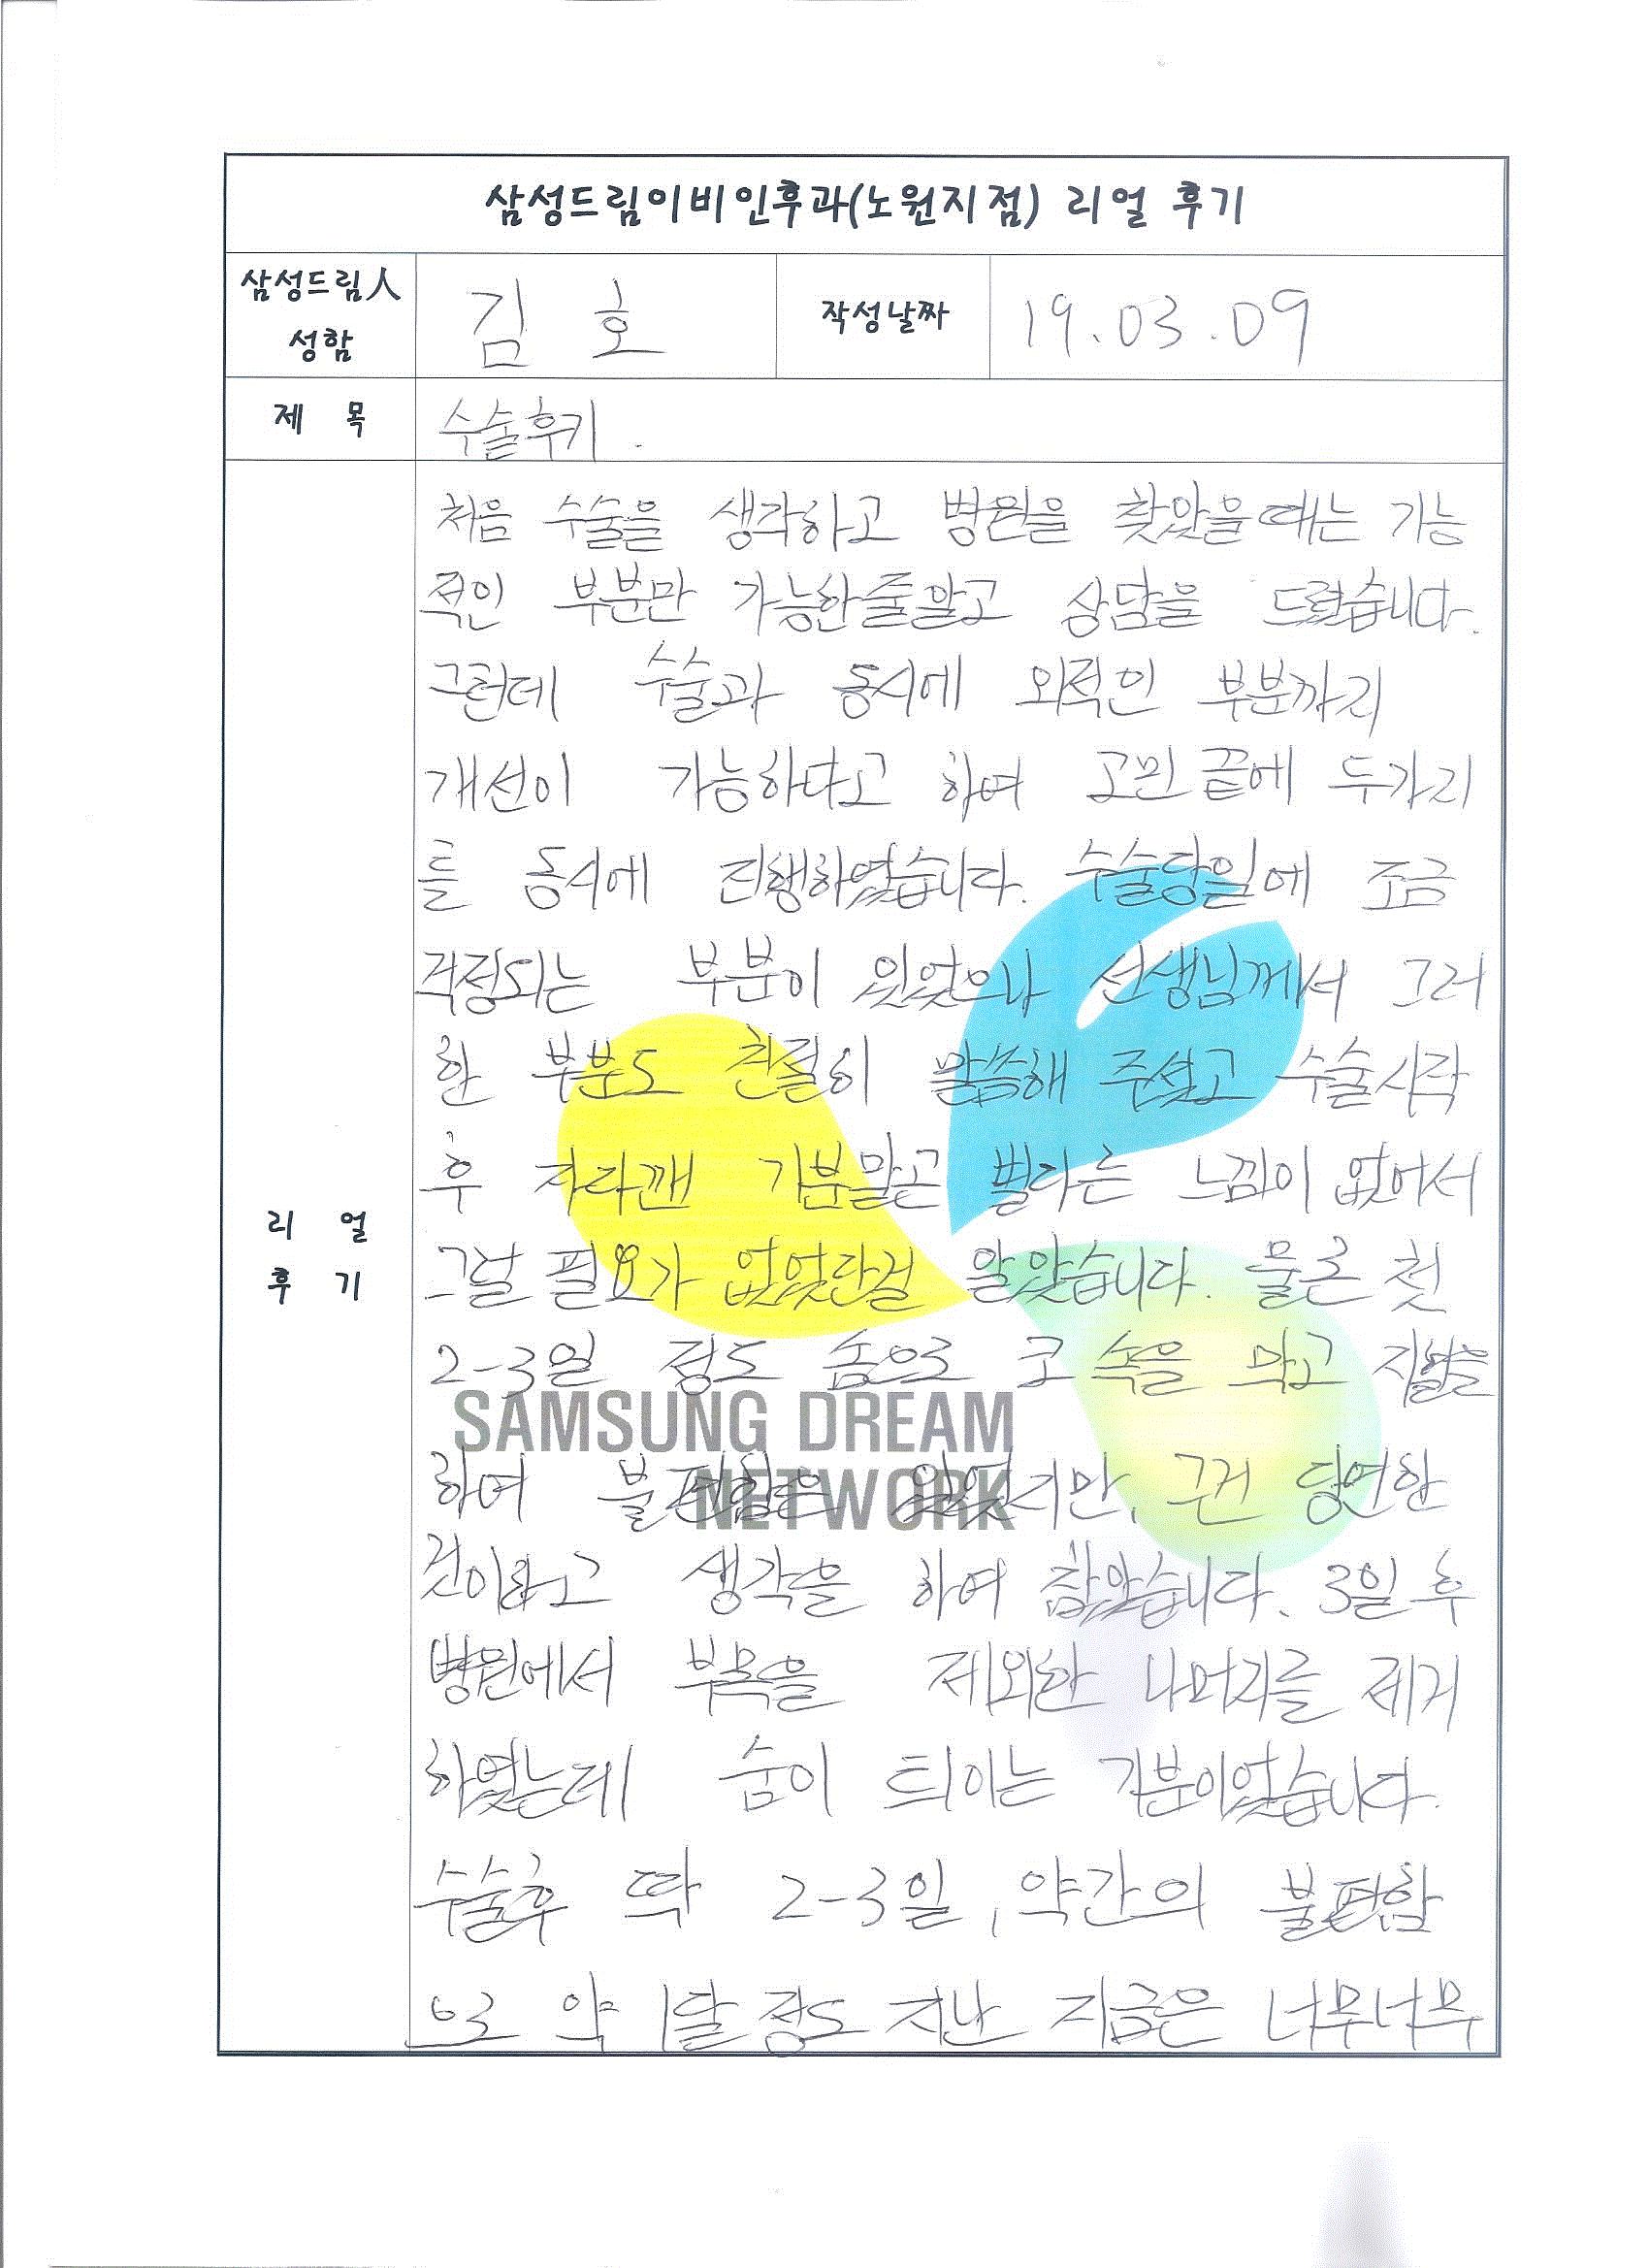 삼성드림이비인후과(노원지점) 리얼 후기
삼성드림人 성함 김 호 작성날짜 19.03.09
제 목 수술후기.
리 얼 후 기
처음 수술을 생각하고 병원을 찾았을때는 기능
적인 부분만 가능한줄알고 상담을 드렸습니다.
그런데 수술과 동시에 외적인 부분까지
개선이 가능하다고 하여 고민 끝에 두가지
를 동시에 진행하였습니다. 수술당일에 조금
걱정되는 부분이 있었으나 선생님께서 그러
한 부분도 친절히 말씀해 주셨고 수술시작
후 자다깬 기분말곤 별다른 느낌이 없어서
그럴 필요가 없었단걸 알았습니다. 물론 첫
2-3일 정도 솜으로 코 속을 막고 지혈을
하여 불편함은 있었지만, 그건 당연한
것이라고 생각을 하여 참았습니다. 3일 후
병원에서 부목을 제외한 나머지를 제거
하였는데 숨이 트이는 기분이었습니다.
수술후 딱 2-3일, 약간의 불편함
으로 약 1달 정도 지난 지금은 너무너무
SAMSUNG DREAM
NETWORK